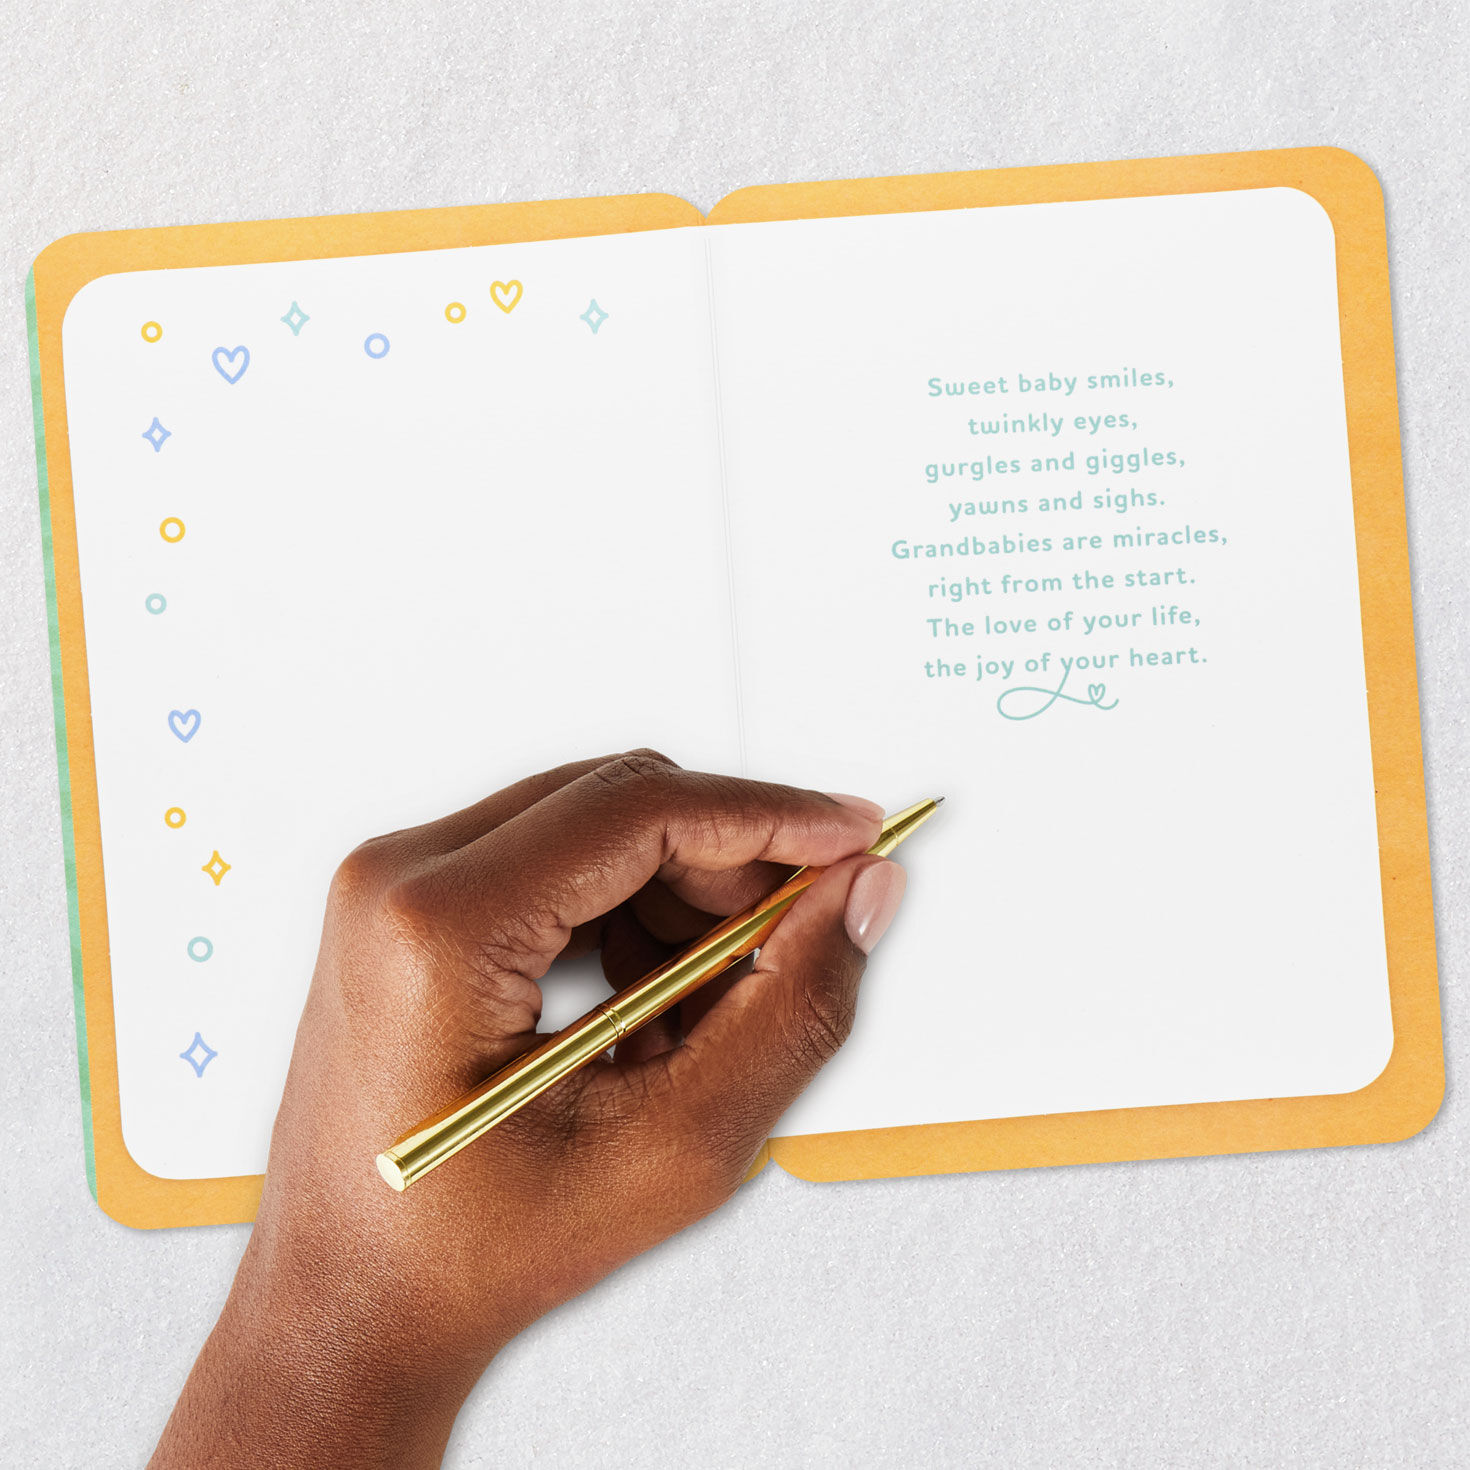 Sweet baby smiles,
twinkly eyes,
gurgles and giggles,
yawns and sighs.
Grandbabies are miracles,
right from the start.
The love of your life,
the joy of your heart.